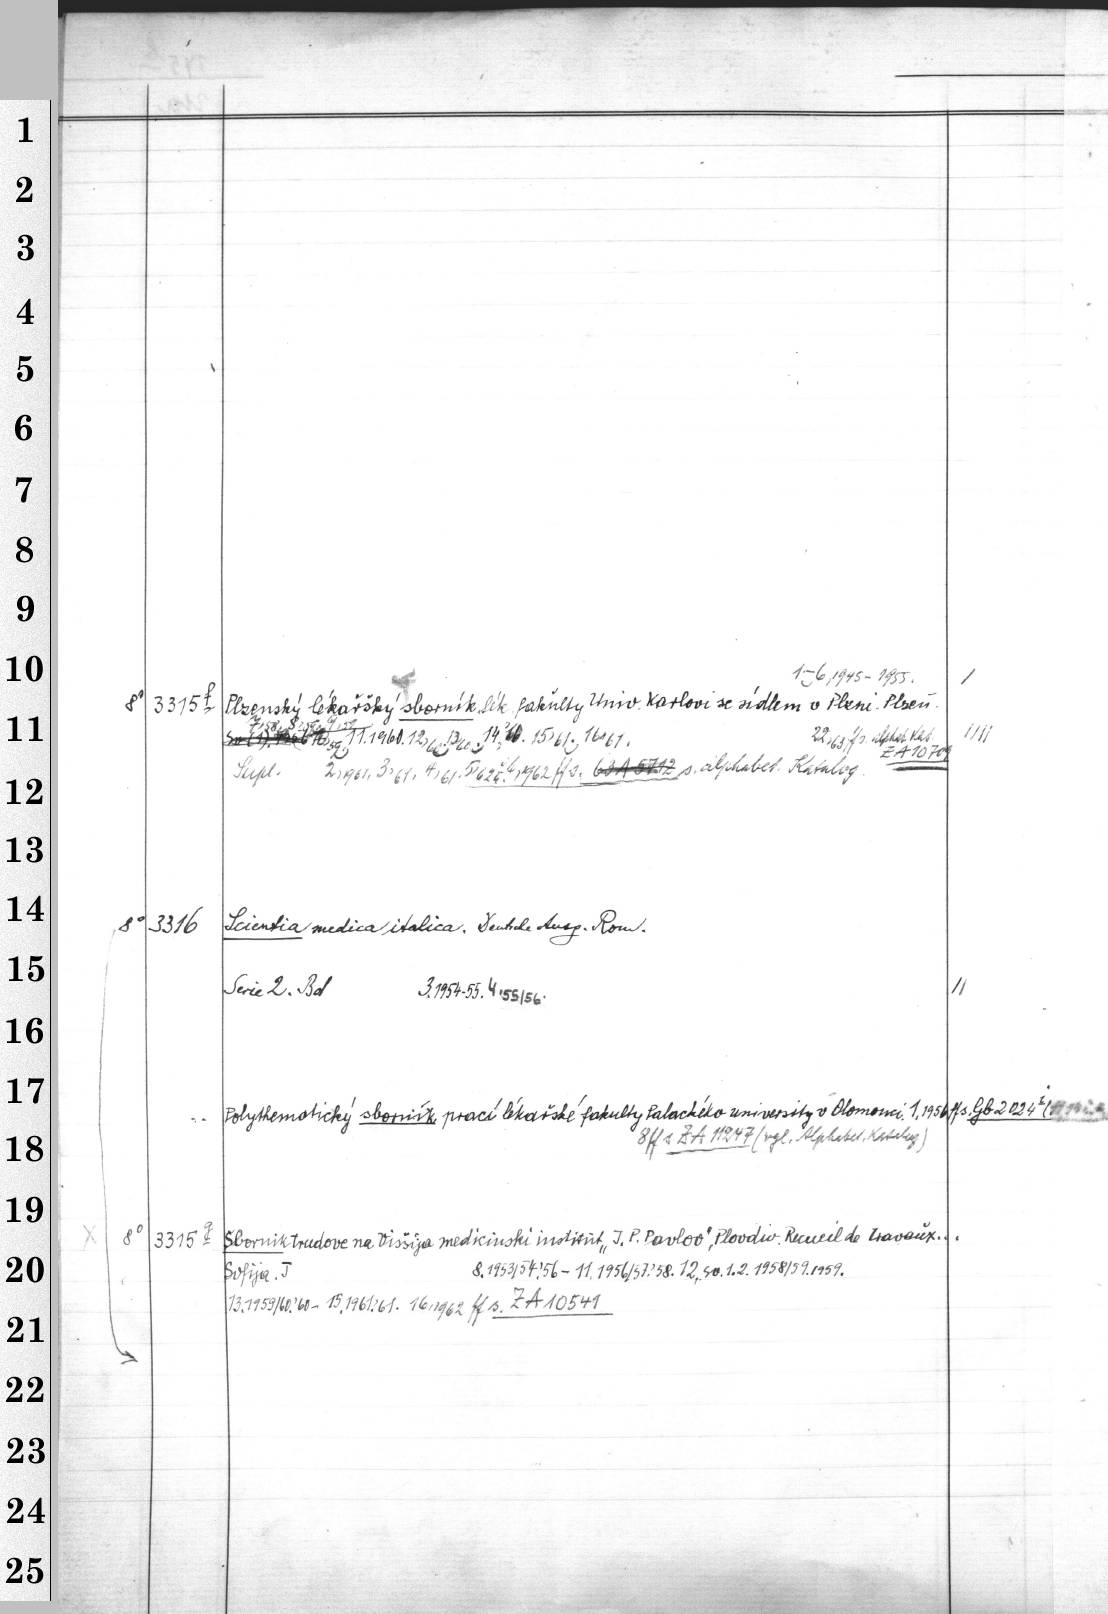 1
2
3
4
5
6
7
8
9
10
1-6, 1945-1955. /
8° 3315 f Plzenský lékařský sborník lék. fakulty Univ. Karlovi se sídlem v Plzni. Plzeň.
11
11.1960. 12, 14, 15,61. 16,61. 22,63 ff s. alphab. Kat. ////
ZA 10709
Supl. 2,1961. 3,61. 4,61. 5,62 1962 ff s. s. alphabet. Katalog.
12
13
14
8° 3316 Scientia medica italica. Deutsche Ausg. Rom.
15
Serie 2. Bd 3.1954-55. 4.55/56. //
16
17
Polythematický sborník prací lékařské fakulty Palackého university v Olomouci. 1,1956 ff s. Gb 2024
18
8 ff s ZA 11247 (vgl. Alphabet. Katalog)
19
X 8° 3315 g Sbornik trudove na Visšija medicinski institut „J. P. Pavlov", Plovdiv. Recueil de travaux...
20
Sofija. 8.1953/54.'56 - 11,1956/57.'58. 12, So.1.2. 1958/59.1959.
13.1959/60.'60 - 15,1961.'61. 16,1962 ff s. ZA 10541
21
22
23
24
25